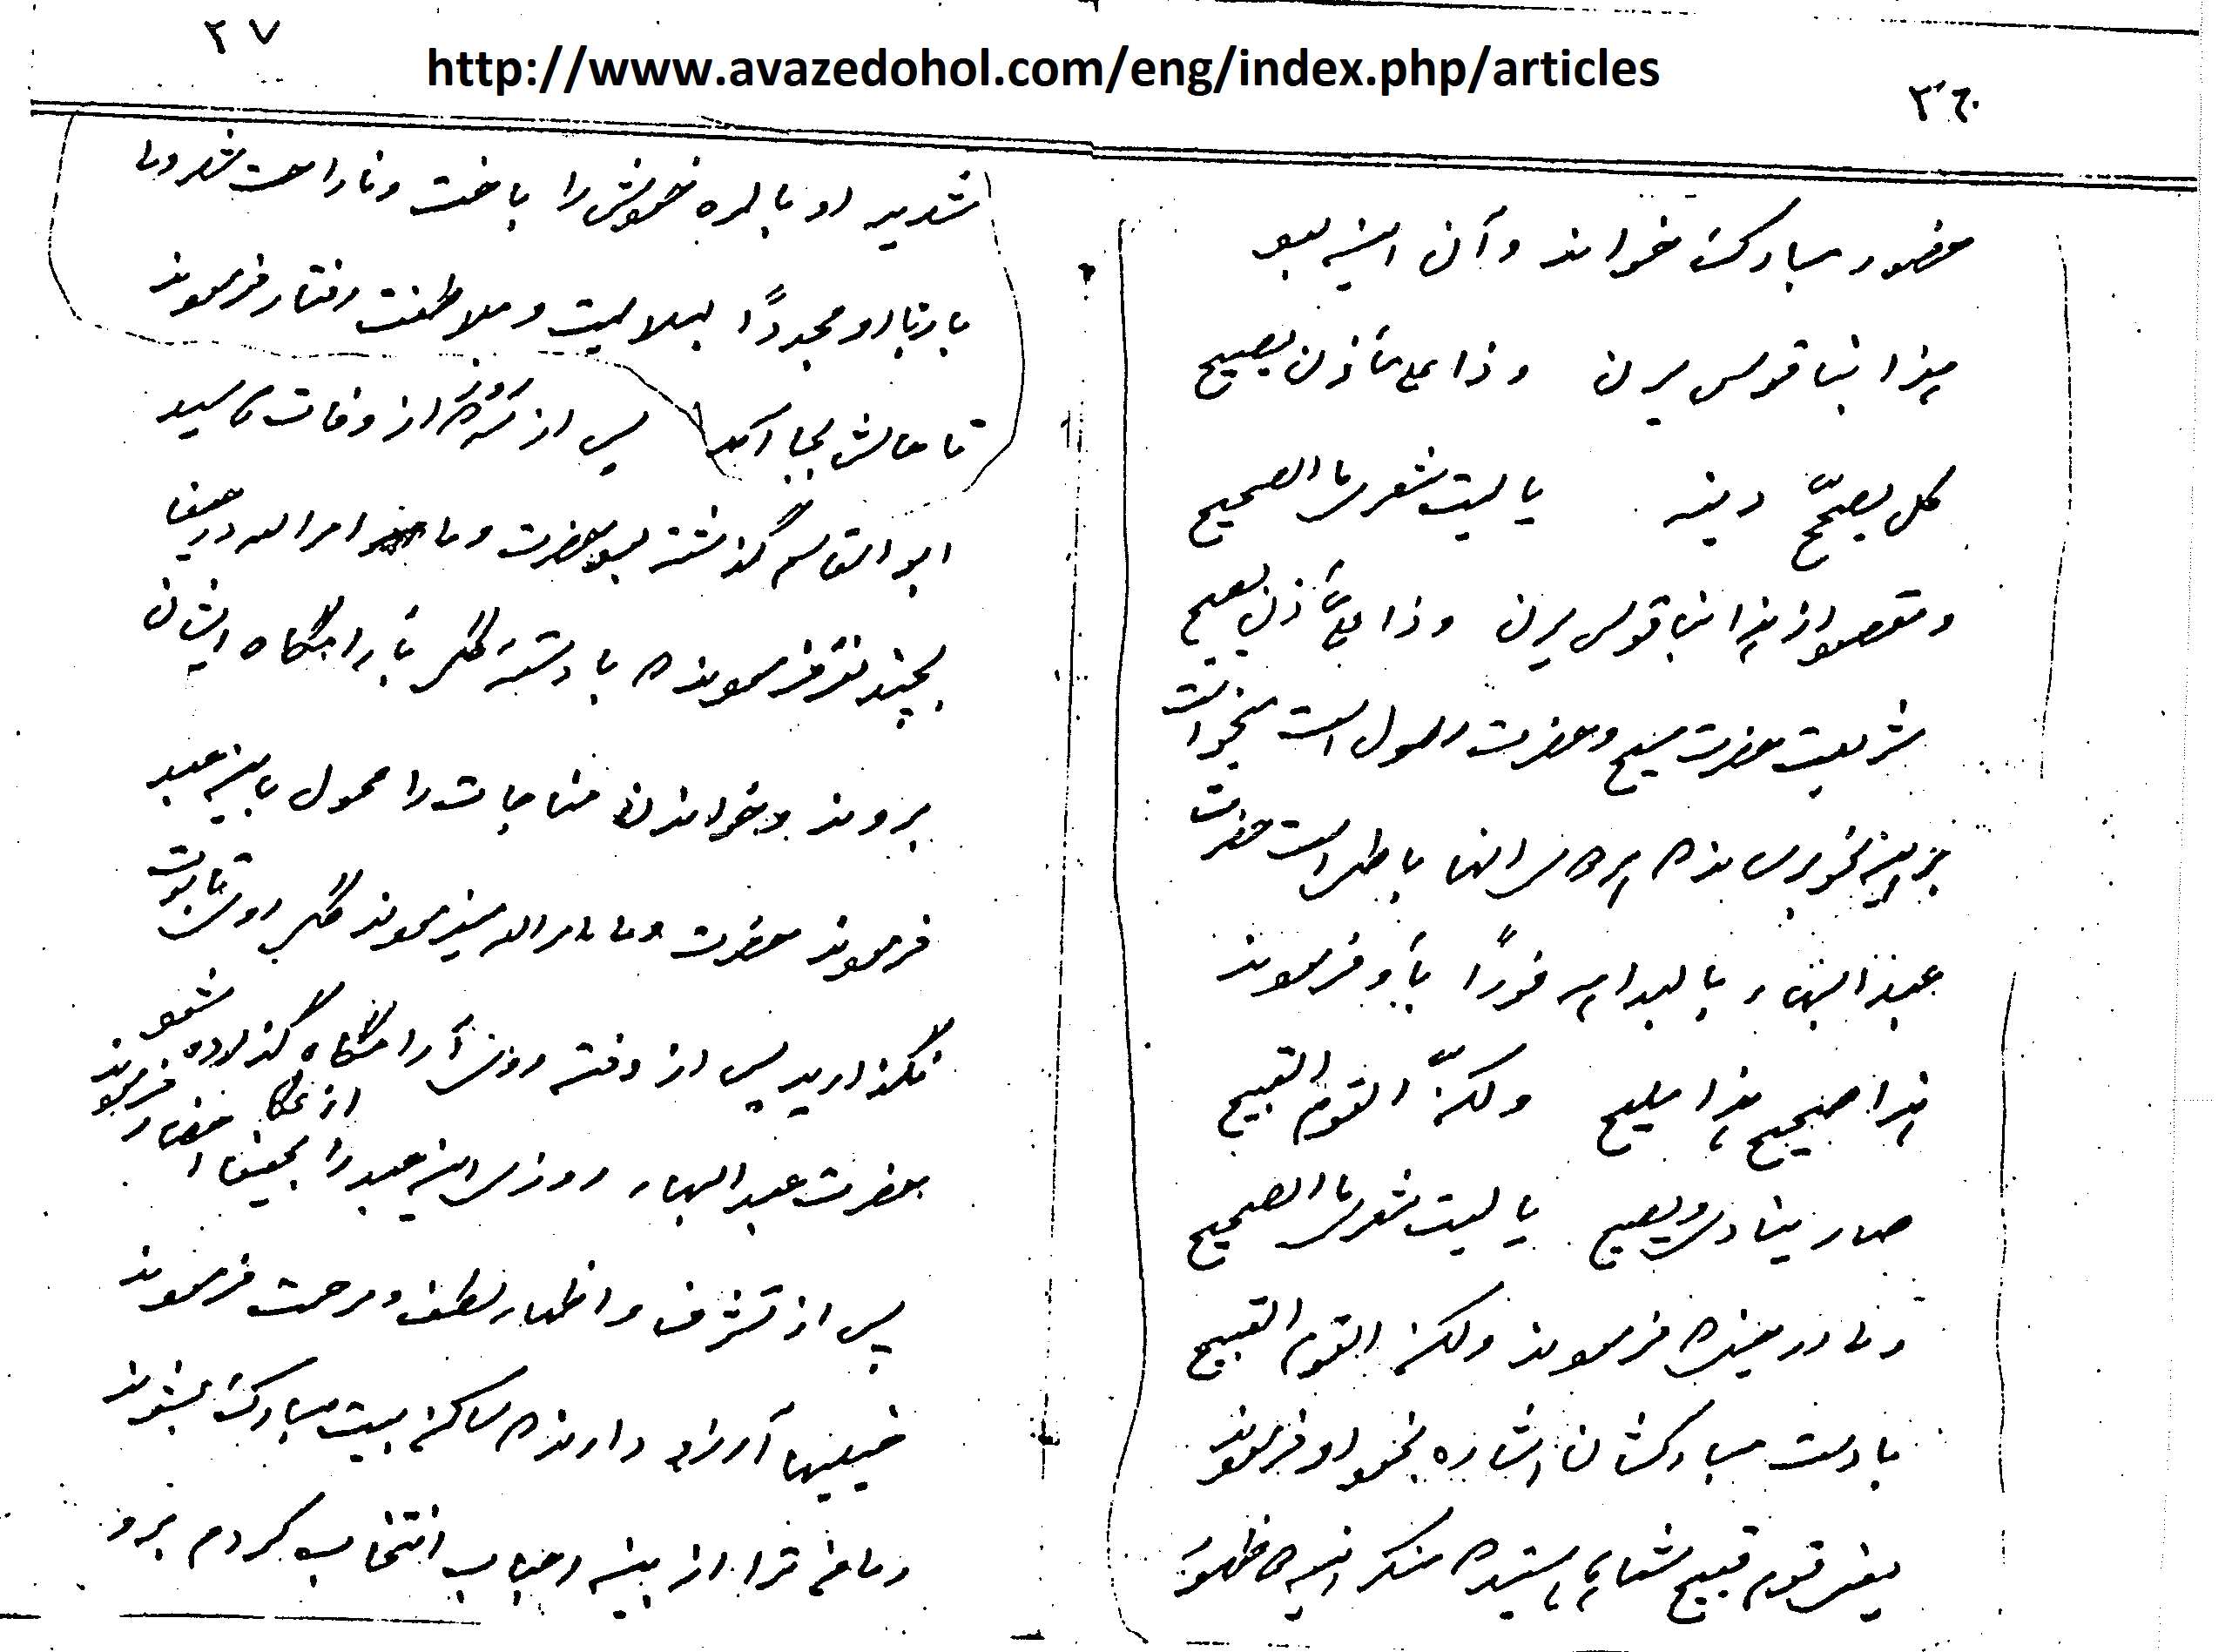 http://www.avazedohol.com/eng/index.php/articles
٣٦
حضور مبارکش خواند و آن این بود
هذا بناقوس یرن وذا علی مأذن یصیح
کل یصحّح دینه یا لیت شعری ما الصحیح
و مقصود از هذا بناقوس یرن وذا علی مأذن یصیح
شریعت حضرت مسیح و حضرت رسول است میخواست
عبدالبهاء بالبداهه فوراً باو فرمودند
هذا صحیح هذا ملیح ولکنّ القوم القبیح
صار ینادی و یصیح یا لیت شعری ما الصحیح
ولی در حینیکه فرمودند ولکن القوم القبیح
با دست مبارکشان اشاره بخود او فرمودند
یعنی قوم قبیح شماها هستید که منکر این ظهور
٣٧
شدید او بالمره خودش را باخت و ناراحت شد ولی
باز با او مجدداً بملایمت و ملاطفت رفتار فرمودند
تا حالش بجا آمد پس از آنکه از وفات آسید
ابوالقاسم گذشته بود حضرت ولی امرالله در حیفا
بچند نفر فرمودند که با دسته گل بآرامگاه ایشان
بروند و خواندن مناجات را محول باین عبد
فرمودند حضرت ولی امرالله میفرمودند گل روی تابوت
نگذارید پس از دفن روی آرامگاه گذارده شود
حضرت عبدالبهاء روزی این عبد را بحیفا از عکا احضار فرمودند
پس از تشرف و اظهار لطف و مرحمت فرمودند
خیلیها آرزو دارند که ساکن بیت مبارک بشوند
ولی من ترا از بین احباب انتخاب کردم برو